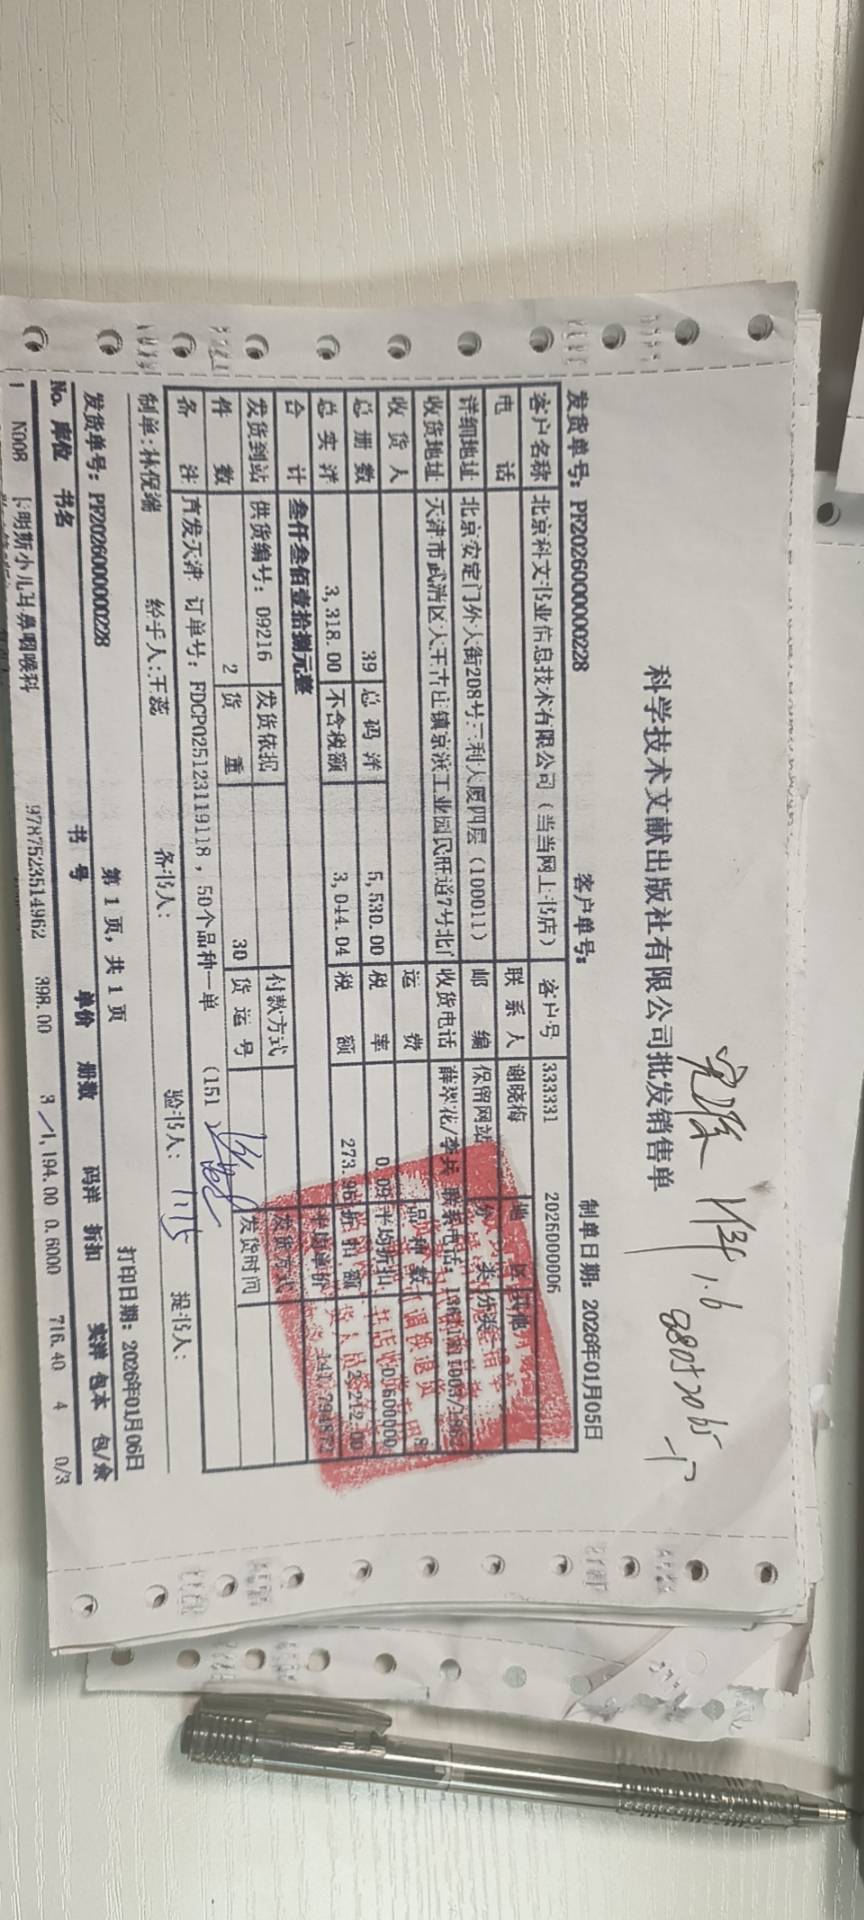 科学技术文献出版社有限公司批发销售单
发货单号: PF2026000000228 客户单号: 制单日期: 2026年01月05日
客户名称 北京科文书业信息技术有限公司（当当网上书店） 客户号 333331 2026000006
电 话 联系人 谢晓梅 地 区 其他
详细地址 北京安定门外大街208号三利大厦四层（100011） 邮 编 保留网站 分 类 分类
收货地址 天津市武清区大王古庄镇京滨工业园民旺道7号北门 收货电话 薛翠花/李兵 联系电话:
收 货 人 运 费 品 种 数 8
总 册 数 39 总 码 洋 5,530.00 税 率 0.09 平均折扣 0.600000
总 实 洋 3,318.00 不含税额 3,044.04 税 额 273.96 折 扣 额 2,212.00
合 计 叁仟叁佰壹拾捌元整 平均单价 141.794872
发货到站 供货编号: 09216 发货依据 付款方式 发货方式
件 数 2 货 重 30 货 运 号 发货时间
备 注 直发天津 订单号: FDCP025123119118 , 50个品种一单 (151
制单: 林俊端 经手人: 王蕊 备书人: 验书人: 提书人:
发货单号: PF2026000000228 第 1 页, 共 1 页 打印日期: 2026年01月06日
No. 库位 书名 书 号 单价 册数 码洋 折扣 实洋 包本 包/余
1 N008 詹明斯小儿耳鼻咽喉科 9787523514962 398.00 3 1,194.00 0.6000 716.40 4 0/3